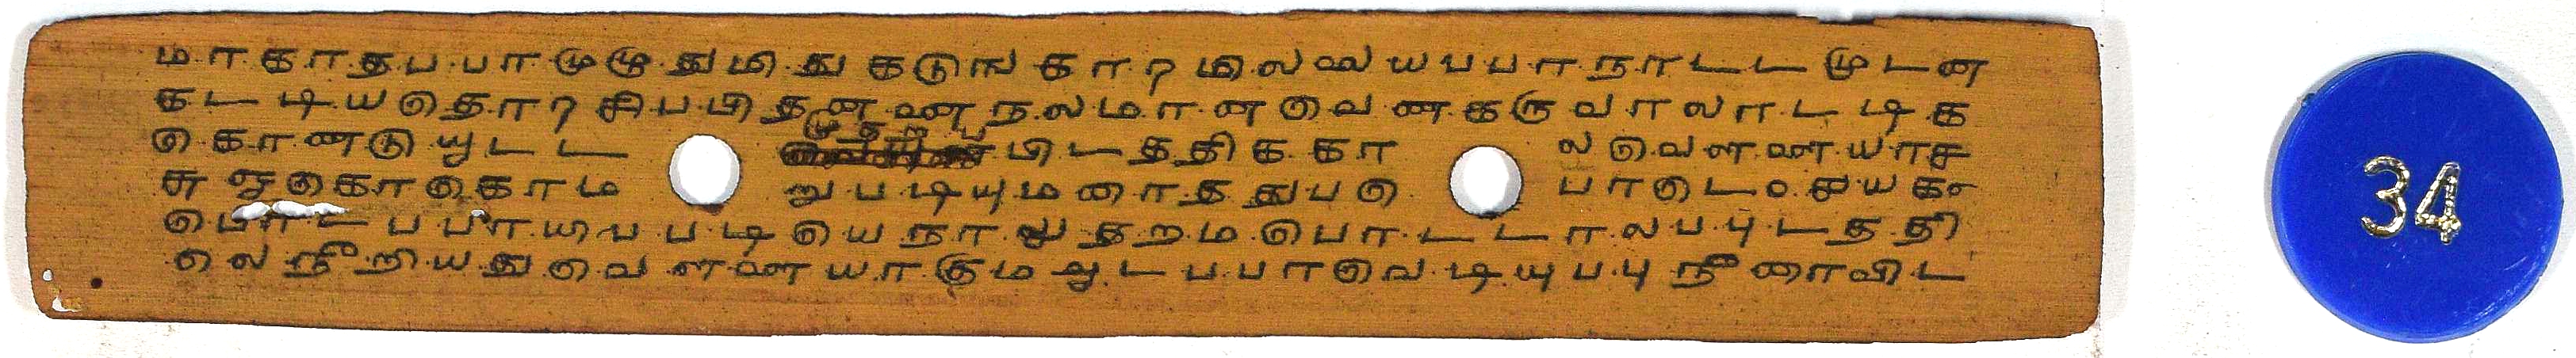 மாகாதபபாமுழுதுமிதுகடுஙகாரமிலலையபபாநாடடமுடன
கடடியதொரசிபபிதனனைநலமானவெணகருவாலாடடிக
கொணடுயுடட முதறபபிடததிககா லவெளளையாச
சுஜகொகொம றுபடியுமரைததுபபு பாடெ௦துயக
பொடபபாயபபடியெநாலுதறமபொடடாலபபுடததி
லெநீறியதுவெளளையாகுமஅடபபாவெடியுபபுநீரைவிட
34